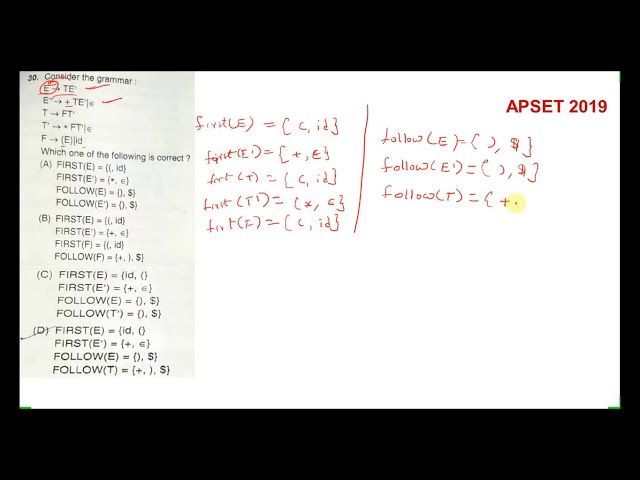 30. Consider the grammar :
E → TE'
E' → + TE'|∈
T → FT'
T' → + FT'|∈
F → (E)|id
Which one of the following is correct ?
(A) FIRST(E) = {(, id}
FIRST(E') = {*, ∈}
FOLLOW(E) = {), $}
FOLLOW(E') = {), $}
(B) FIRST(E) = {(, id}
FIRST(E') = {+, ∈}
FIRST(F) = {(, id}
FOLLOW(F) = {+, ), $}
(C) FIRST(E) = {id, (}
FIRST(E') = {+, ∈}
FOLLOW(E) = {), $}
FOLLOW(T') = {), $}
(D) FIRST(E) = {id, (}
FIRST(E') = {+, ∈}
FOLLOW(E) = {), $}
FOLLOW(T) = {+, ), $}
first(E) = { (, id}
first(E') = { +, ∈}
first(T) = { (, id}
first(T') = {*, ∈}
first(F) = { (, id}
APSET 2019
follow(E) = { ), $}
follow(E') = { ), $}
follow(T) = { + ,